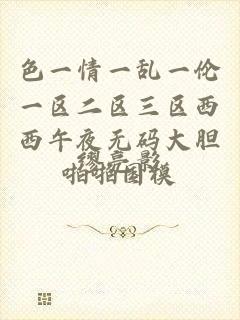 色一情一乱一伦
一区二区三区西
西午夜无码大胆
啪啪国模
缪亮 影